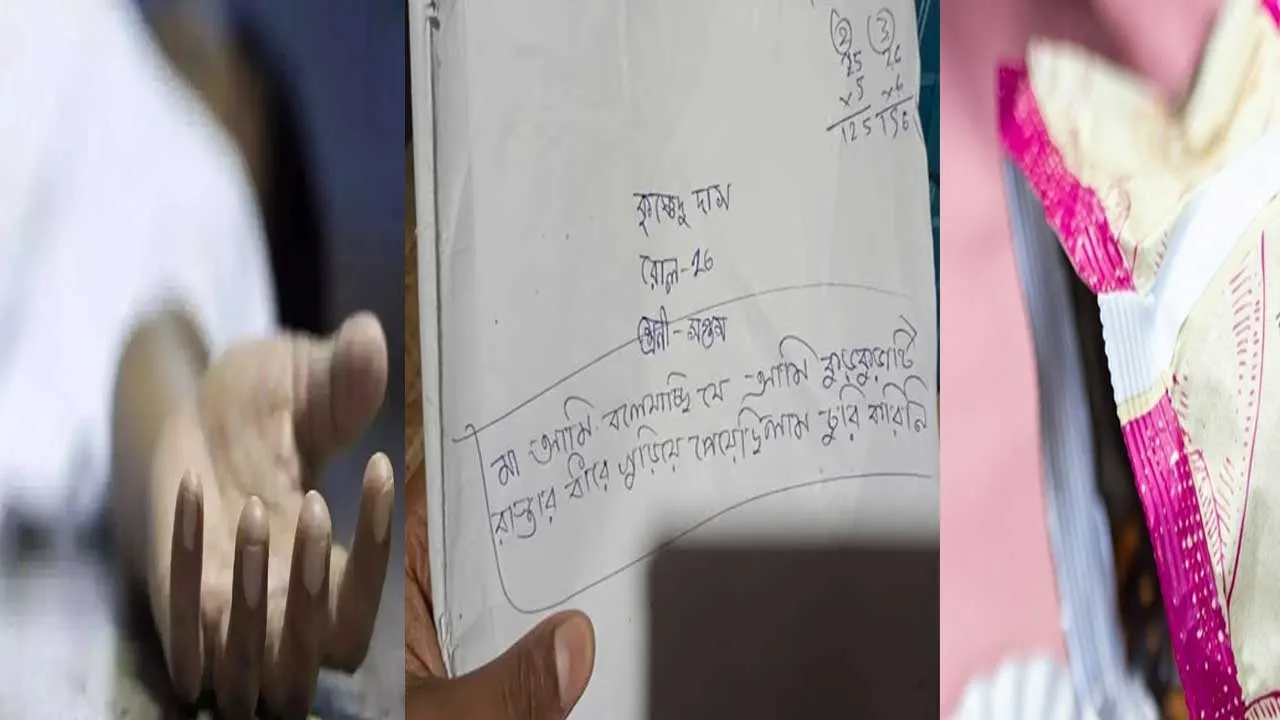 2 3
25 26
x 5 x 6
125 156
কৃষ্ণেন্দু দাস
রোল-26
শ্রেনী-সপ্তম
মা আমি বলেযাচ্ছি যে আমি কুড়কুড়াটি
রাস্তার ধীরে খুড়িয়ে পেয়েছিলাম চুরি করিনি